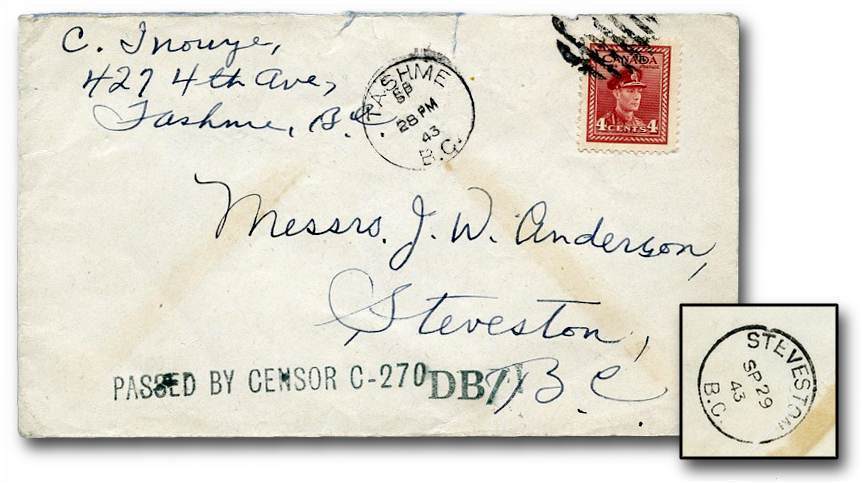 C. Inouye,
427 4th Ave,
Tashme, B.C.
TASHME
SP
28 PM
43
B.C.
CANADA
4 CENTS 4
Messrs. J. W. Anderson,
Steveston,
B.C
PASSED BY CENSOR C-270 DB/
STEVESTON
SP 29
43
B.C.